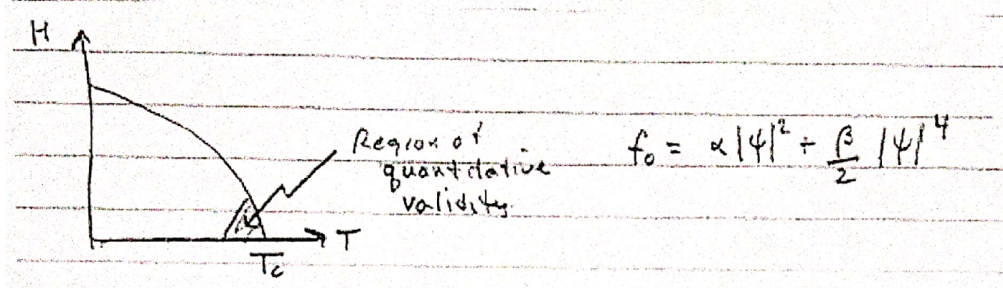 H
Region of
quantitative
validity
f₀ = α|ψ|² + β/2 |ψ|⁴
T
Tc